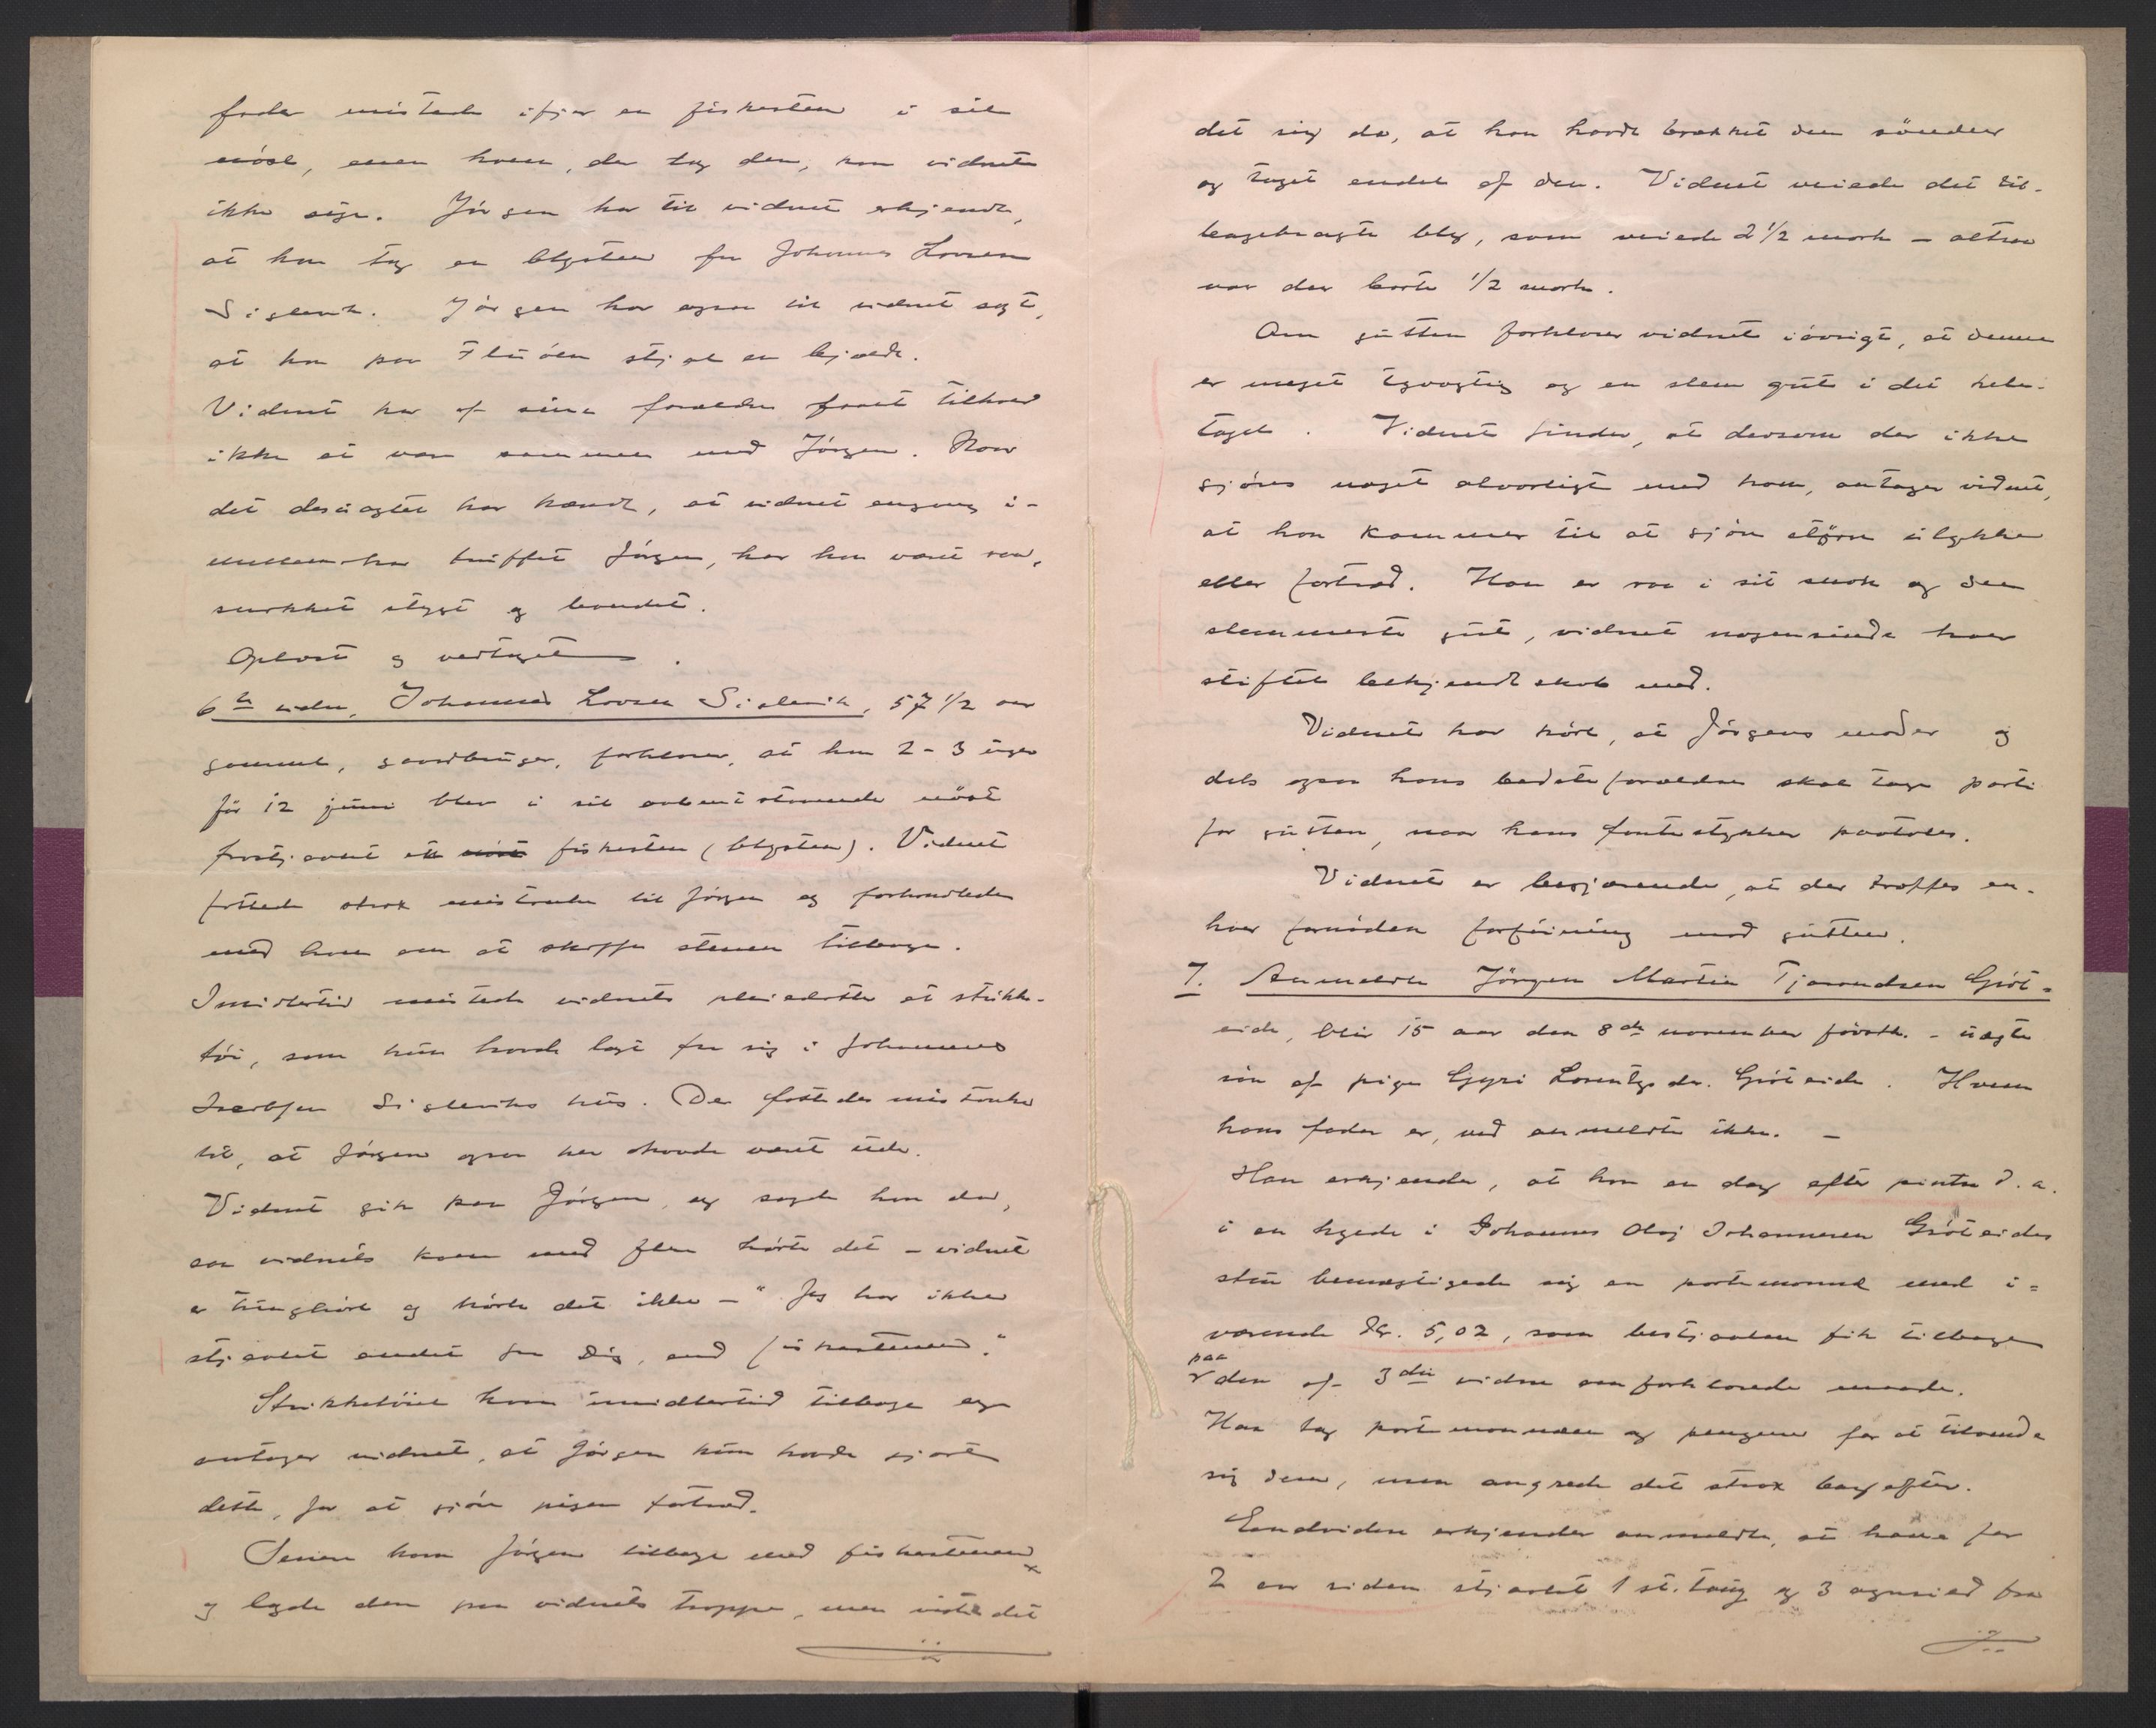 fader mistede ifjor en fiskesten i sit
nöst, men hvem, der tog den, kan vidnet
ikke sige. Jörgen har til vidnet erkjendt,
at han tog en blysten fra Johannes Larsen
Siglevik. Jörgen har ogsaa til vidnet sagt,
at han paa Fluöen stjal en bjælde.
Vidnet har af sine forældre faaet tilhold
ikke at være sammen med Jörgen. Naar
det desuagtet har hændt, at vidnet engang i-
mellem har truffet Jörgen, har han været raa,
snakket stygt og bandet.
Oplæst og vedtaget.
6te vidne, Johannes Larsen Siglevik, 57 1/2 aar
gammel, gaardbruger, forklarer, at han 2-3 uger
för 12 juni blev i sit aabentstaaende nöst
frastjaalet en fiskesten (blysten). Vidnet
fattede strax mistanke til Jörgen og forhandlede
med ham om at skaffe stenen tilbage.
Imidlertid mistede vidnets pleiedatter et strikke-
töi, som hun havde lagt fra sig i Johannes
Sigleviks hus. Der fattedes mistanke
til, at Jörgen ogsaa her havde været ude.
Vidnet gik paa Jörgen, og sagde han da,
saa vidnets kone med flere hörte det - vidnet
er tunghört og hörte det ikke - "Jeg har ikke
stjaalet andet fra Dig, end fiskestenen."
Strikketöiet kom imidlertid tilbage og
antager vidnet, at Jörgen kun havde gjort
dette, for at gjöre pigen fortræd.
Senere kom Jörgen tilbage med fiskestenen
og lagde den paa vidnets trappe, men viste det
det sig da, at han havde brækket den sönder
og taget endel af den. Vidnet veiede det til-
bagebragte bly, som veiede 2 1/2 mark - altsaa
var der borte 1/2 mark.
Om gutten forklarer vidnet iövrigt, at denne
er meget tyvagtig og en slem gut i det hele-
taget. Vidnet finder, at dersom der ikke
gjöres noget alvorligt med ham, antager vidnet,
at han kommer til at gjöre större ulykke
eller fortræd. Han er raa i sit snak og den
slemmeste gut, vidnet nogensinde har
stiftet bekjendtskab med.
Vidnet har hört, at Jörgens moder og
dels ogsaa hans bedsteforældre skal tage parti
for gutten, naar hans fantestykker paatales.
Vidnet er begjærende, at der træffes en-
hver fornöden forföining mod gutten.
7. Anmeldte Jörgen Martin Tjerandsen Gröt-
eide, blir 15 aar den 8de november förstk. - uægte
sön af pige Gyri Lorentzdr. Gröteide. Hvem
hans fader er, ved anmeldte ikke. -
Han erkjender, at han en dag efter pintse d.a.
i en hyede i Johannes Olaj Johannesen Gröteides
stue bemægtigede sig en portemonnæ med i-
værende Kr. 5,02, som bestjaalne fik tilbage
paa
den af 3die vidne omforklarede maade.
Han tog portemonnæen og pengene for at tilvende
sig dem, men angrede det strax bagefter.
Endvidere erkjender anmeldte, at have for
2 aar siden stjaalet 1 st. taug og 3 agnsild fra